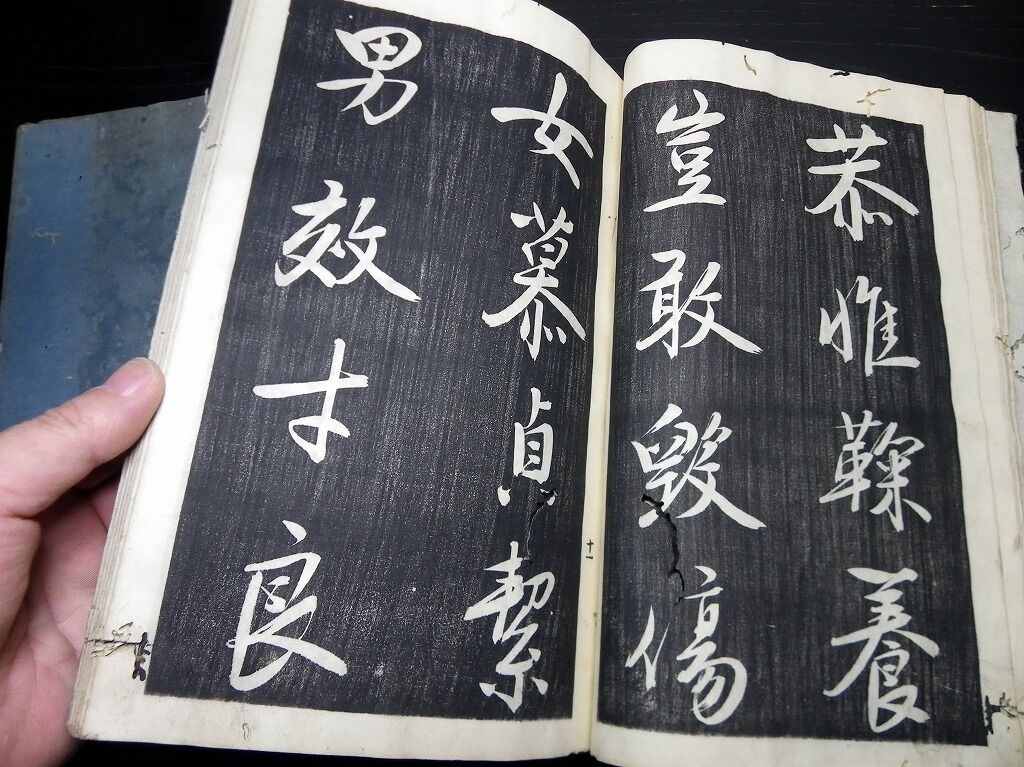 恭惟鞠養
豈敢毀傷
十一
女慕貞絜
男效才良